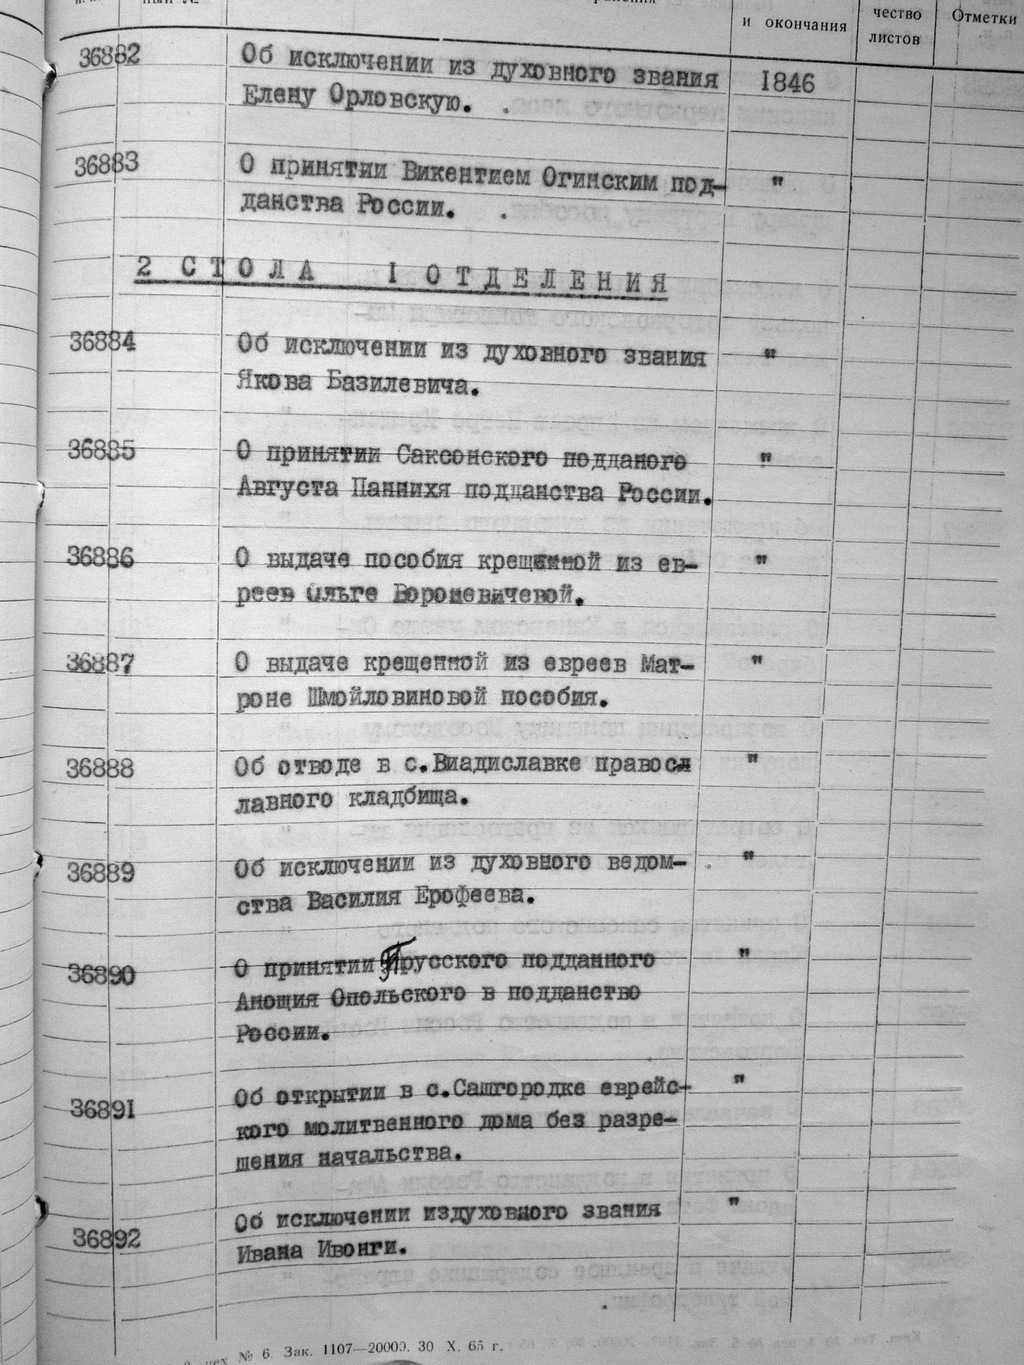 и окончания
чество
листов
Отметки
36882 Об исключении из духовного звания 1846
Елену Орловскую.
36883 О принятии Викентием Огинским под- "
данства России.
2 СТОЛА I ОТДЕЛЕНИЯ
36884 Об исключении из духовного звания "
Якова Базилевича.
36885 О принятии Саксонского подданого "
Августа Паннихя подданства России.
36886 О выдаче пособия крещенной из ев- "
реев Ольге Вороневичевой.
36887 О выдаче крещенной из евреев Мат- "
роне Шмойловиновой пособия.
36888 Об отводе в с.Виадиславке правосл "
лавного кладбища.
36889 Об исключении из духовного ведом- "
ства Василия Ерофеева.
36890 О принятии Прусского подданного "
Анощия Опольского в подданство
России.
36891 Об открытии в с.Сашгородке еврейс- "
кого молитвенного дома без разре-
шения начальства.
36892 Об исключении издуховного звания "
Ивана Ивонги.
цех № 6. Зак. 1107—20000. 30 X. 65 г.